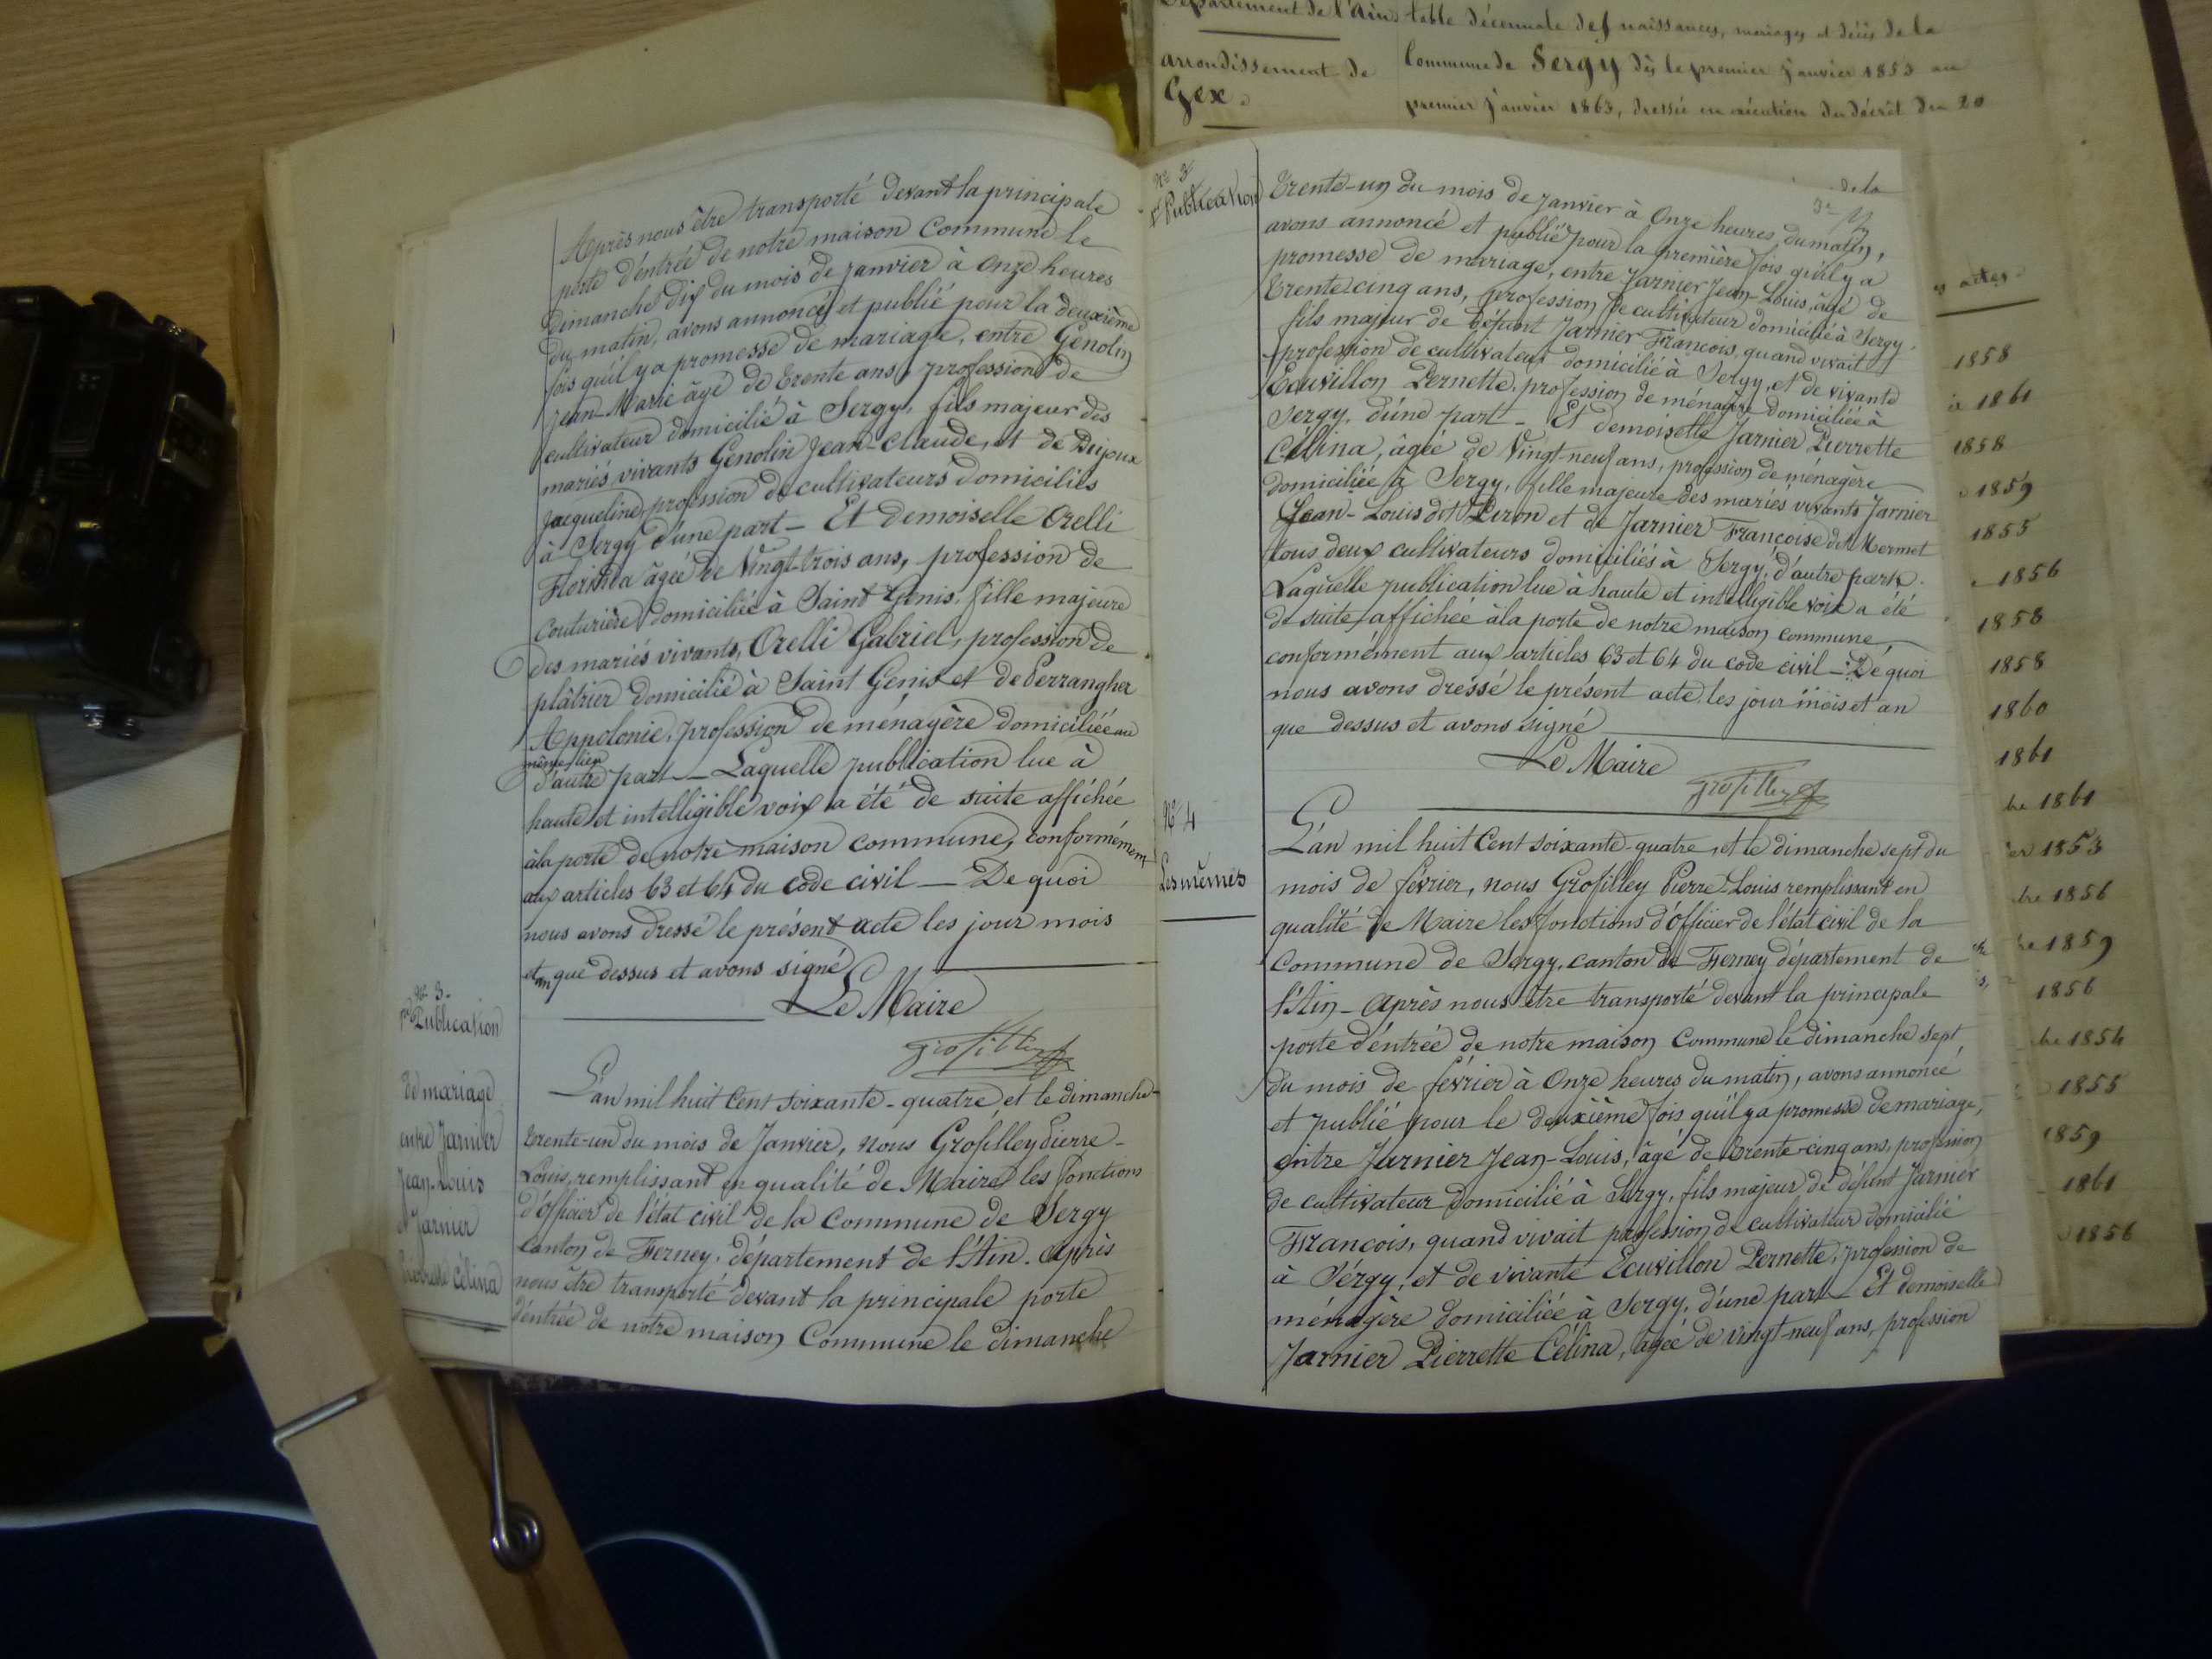 Département de l'Ain
arrondissement de
Gex.
table décennale des naissances, mariages et décès de la
Commune de Sergy dès le premier janvier 1853 au
premier janvier 1863, dressée en exécution du décrêt du 20
Après nous être transporté devant la principale
porte d'entrée de notre maison Commune le
dimanche dix du mois de janvier à onze heures
du matin, avons annoncé et publié pour la deuxième
fois qu'il y a promesse de mariage, entre Genolin
Jean-Marie âgé de trente ans, profession de
cultivateur domicilié à Sergy, fils majeur des
mariés vivants Genolin Jean-Claude, et de Dujoux
Jacqueline, profession de cultivateurs domiciliés
à Sergy d'une part - Et demoiselle Orelli
Florinda âgée de Vingt-trois ans, profession de
couturière domiciliée à Saint Genis, fille majeure
des mariés vivants, Orelli Gabriel, profession de
plâtrier domicilié à Saint Genis et de Perrangher
Appolonie, profession de ménagère domiciliée au
même lieu
d'autre part - Laquelle publication lue à
haute et intelligible voix a été de suite affichée
à la porte de notre maison commune, conformément
aux articles 63 et 64 du code civil - De quoi
nous avons dressé le présent acte les jour mois
et an que dessus et avons signé
Le Maire
Grosfilley
N° 3
1re Publication
de mariage
entre Jarnier
Jean-Louis
et Jarnier
Pierrette Célina
L'an mil huit Cent soixante-quatre et le dimanche
trente-un du mois de Janvier, nous Grosfilley Pierre-
Louis, remplissant en qualité de Maire les fonctions
d'officier de l'état civil de la Commune de Sergy
canton de Ferney, département de l'Ain. Après
nous être transporté devant la principale porte
d'entrée de notre maison Commune le dimanche
N° 3
1re Publication
trente-un du mois de janvier à Onze heures du matin,
avons annoncé et publié pour la première fois qu'il y a
promesse de mariage, entre Jarnier Jean-Louis, âgé de
trente cinq ans, profession de cultivateur domicilié à Sergy
fils majeur de défunt Jarnier François, quand vivait
profession de cultivateur domicilié à Sergy, et de vivante
Ecuvillon Pernette, profession de ménagère domiciliée à
Sergy, d'une part - Et demoiselle Jarnier Pierrette
Célina, âgée de Vingt-neuf ans, profession de ménagère
domiciliée à Sergy, fille majeure des mariés vivants Jarnier
Jean-Louis dit Piron et de Jarnier Françoise dit Mermet
tous deux cultivateurs domiciliés à Sergy, d'autre part.
Laquelle publication lue à haute et intelligible voix a été
de suite affichée à la porte de notre maison commune
conformément aux articles 63 et 64 du code civil - De quoi
nous avons dressé le présent acte les jour mois et an
que dessus et avons signé
Le Maire
Grosfilley
N° 4
Les mêmes
L'an mil huit Cent soixante-quatre, et le dimanche sept du
mois de février, nous Grosfilley Pierre-Louis remplissant en
qualité de Maire les fonctions d'officier de l'état civil de la
Commune de Sergy, canton de Ferney département de
l'Ain - Après nous être transporté devant la principale
porte d'entrée de notre maison Commune le dimanche sept
du mois de février à Onze heures du matin, avons annoncé
et publié pour le deuxième fois qu'il y a promesse de mariage,
entre Jarnier Jean-Louis, âgé de trente-cinq ans, profession
de cultivateur domicilié à Sergy, fils majeur de défunt Jarnier
François, quand vivait profession de cultivateur domicilié
à Sergy, et de vivante Ecuvillon Pernette, profession de
ménagère domiciliée à Sergy, d'une part - Et demoiselle
Jarnier Pierrette Célina, âgée de vingt-neuf ans, profession
de la
actes
1858
1861
1858
1859
1855
1856
1858
1858
1860
1861
bre 1861
1853
bre 1856
1859
1856
bre 1854
1855
1859
1861
1856